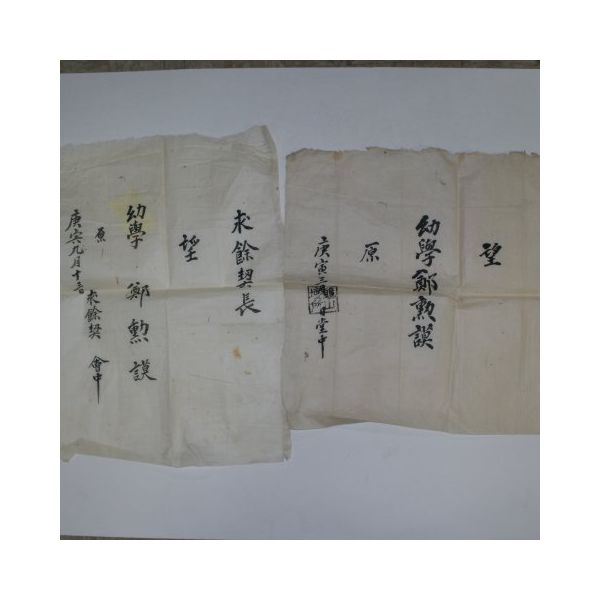 望
幼學鄭勳謨
原
庚寅三月日堂中
求餘契長
望
幼學 鄭勳謨
原
庚寅九月十
求餘契 會中